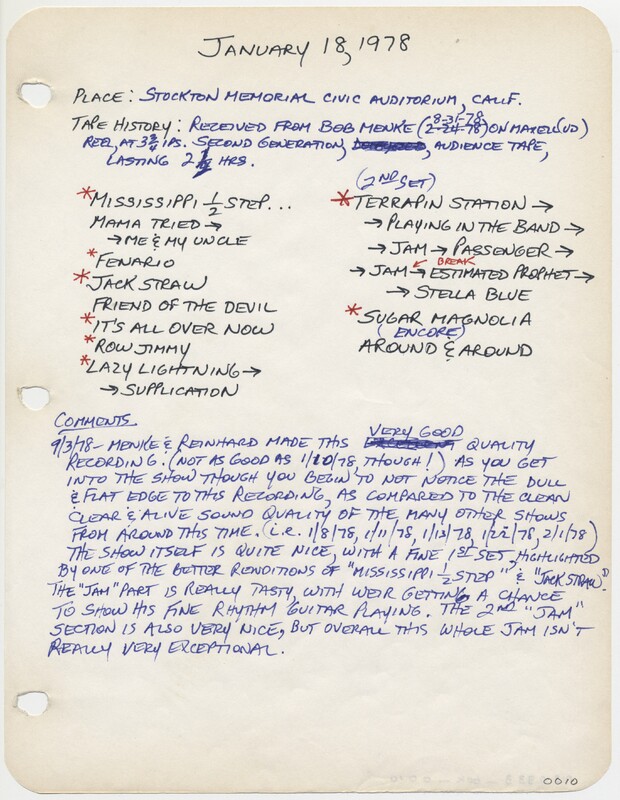 JANUARY 18, 1978
PLACE: STOCKTON MEMORIAL CIVIC AUDITORIUM, CALIF.
8-31-78
TAPE HISTORY: RECEIVED FROM BOB MENKE (2-24-78) ON MAXELL (UD)
REEL, AT 3 3/4 IPS. SECOND GENERATION, AUDIENCE TAPE,
LASTING 2 1/2 HRS.
*MISSISSIPPI 1/2 STEP...
MAMA TRIED →
→ ME & MY UNCLE
*FENARIO
*JACK STRAW
FRIEND OF THE DEVIL
*IT'S ALL OVER NOW
*ROW JIMMY
*LAZY LIGHTNING →
→ SUPPLICATION
(2ND SET)
*TERRAPIN STATION →
→ PLAYING IN THE BAND →
→ JAM → PASSENGER →
BREAK
→ JAM → ESTIMATED PROPHET →
→ STELLA BLUE
*SUGAR MAGNOLIA
(ENCORE)
AROUND & AROUND
COMMENTS
VERY GOOD
9/3/78 - MENKE & REINHARD MADE THIS QUALITY
RECORDING. (NOT AS GOOD AS 1/10/78, THOUGH!) AS YOU GET
INTO THE SHOW THOUGH YOU BEGIN TO NOT NOTICE THE DULL
& FLAT EDGE TO THIS RECORDING, AS COMPARED TO THE CLEAN
CLEAR & ALIVE SOUND QUALITY OF THE MANY OTHER SHOWS
FROM AROUND THIS TIME. (i.e. 1/8/78, 1/11/78, 1/13/78, 1/22/78, 2/1/78)
THE SHOW ITSELF IS QUITE NICE, WITH A FINE 1ST SET, HIGHLIGHTED
BY ONE OF THE BETTER RENDITIONS OF "MISSISSIPPI 1/2 STEP" & "JACK STRAW".
THE "JAM" PART IS REALLY TASTY, WITH WEIR GETTING A CHANCE
TO SHOW HIS FINE RHYTHM GUITAR PLAYING. THE 2ND "JAM"
SECTION IS ALSO VERY NICE, BUT OVERALL THIS WHOLE JAM ISN'T
REALLY VERY EXCEPTIONAL.
0010